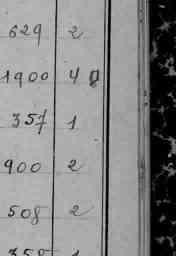 629 2
1900 4
357 1
900 2
508 2
358 1